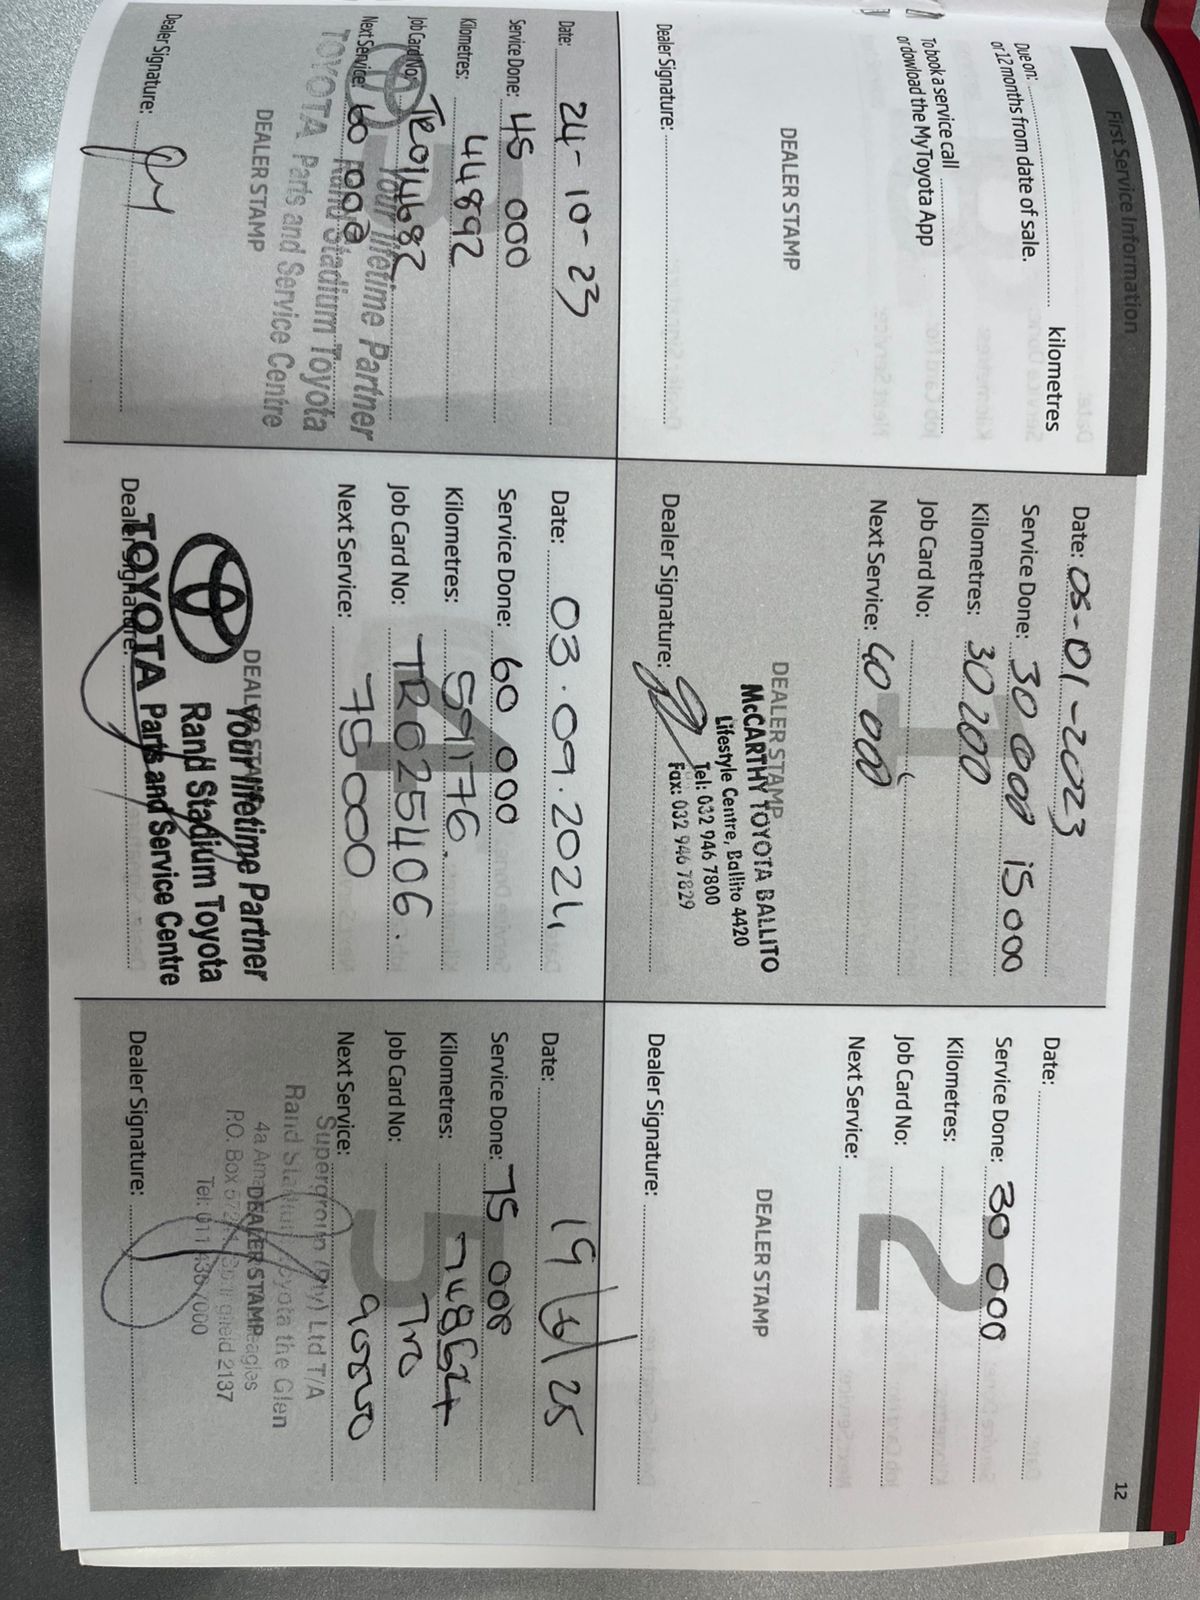 First Service Information
12
kilometres
Due on:
or 12 months from date of sale.
To book a service call
or dowload the MyToyota App
DEALER STAMP
Dealer Signature:
Date: 05-01-2023
Service Done: 30 000 15 000
Kilometres: 30 200
Job Card No:
Next Service: 40 000
1
DEALER STAMP
McCARTHY TOYOTA BALLITO
Lifestyle Centre, Ballito 4420
Tel: 032 946 7800
Fax: 032 946 7829
Dealer Signature:
Date:
Service Done: 30 000
Kilometres:
Job Card No:
Next Service:
2
DEALER STAMP
Dealer Signature:
Date: 24-10-23
Service Done: 45 000
Kilometres: 44892
Job Card No: TR014682
Next Service: 60 000
3
Your lifetime Partner
Rand Stadium Toyota
TOYOTA Parts and Service Centre
DEALER STAMP
Dealer Signature:
Date: 03.09.2024
Service Done: 60 000
Kilometres: 59176.
Job Card No: TR025406.
Next Service: 75 000
4
DEALER STAMP
Your lifetime Partner
Rand Stadium Toyota
TOYOTA Parts and Service Centre
Dealer Signature:
Date: 19/6/25
Service Done: 75 000
Kilometres:
Job Card No: TRO
Next Service: 90000
5
Supergroup (Pty) Ltd T/A
Rand Stadium Toyota the Glen
4a
DEALER STAMP
P.O. Box 2137
Tel: 011
Dealer Signature: